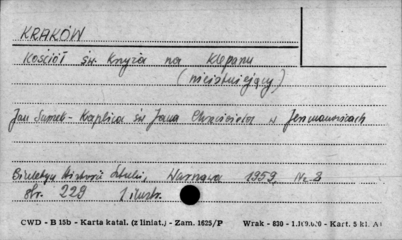 KRAKÓW
Kościół św. Krzyża na Kleparzu
(nieistniejący)
Jan Samek - Kaplica św Jana Chrzciciela w Jerzmanowicach
Biuletyn Historii Sztuki, Warszawa 1959, Nr 3
str. 229 1 ilustr.
CWD - B 15b - Karta katal. (z liniat.) - Zam. 1625/P Wrak - 830 - Kart. 5 kl. A